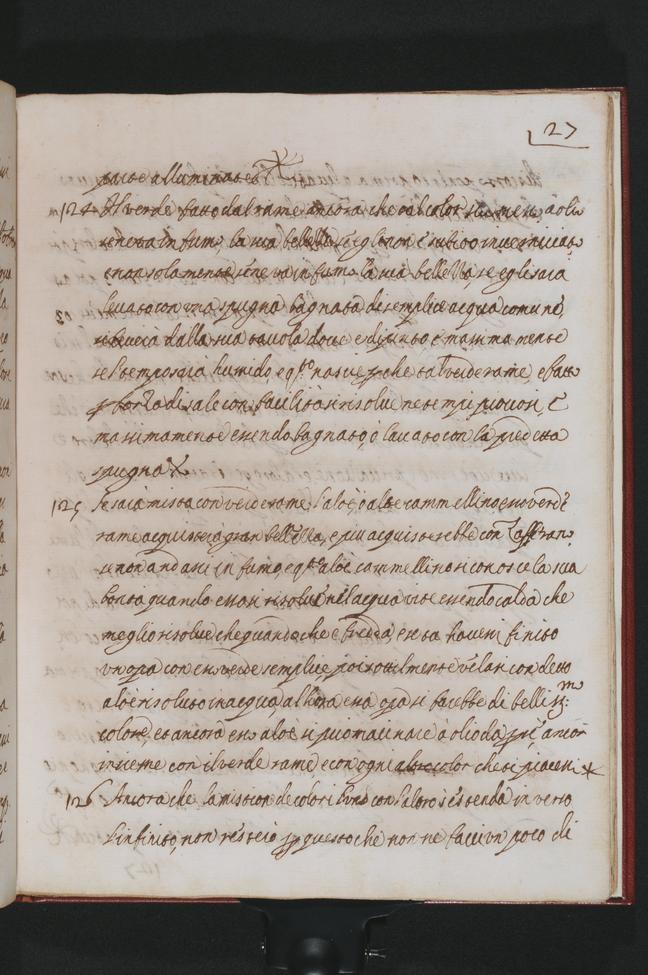 27
parte alluminata
124 Il verde fatto dal rame ancora che tal color si metta a olio
se ne va in fumo la sua bellezza s'egli non è subito inverniciato
e non solamente se ne va in fumo la sua bellezza, se egli sarà
lavato con una spugna bagnata di semplice acqua comune,
si leverà dalla sua tavola dove è dipinto, e massimamente
se 'l tempo sarà humido e q.to nasce perche tal verderame, è fatto
p forza di sale con facilità si risolve ne tempi piovosi, e
massimamente essendo bagnato, o lavato con la predetta
spugna
125 Se sarà misto con verderame l'aloe, o aloe cammellino esso verde
rame acquisterà gran bellezza, e piu acquisterebbe con zafferano
se non andassi in fumo, e q.to aloè cammellino si conosce la sua
bontà quando esso si risolve nel acqua vite essendo calda che
meglio risolve che quando che è fredda, e se tu havessi finito
un opa con esso verde semplice poi sottilmente velassi con detto
aloè risoluto in acqua, alhora essa opa si farebbe di belliss.mo
colore, et ancora esso aloè si può macinare a olio da per se ancor
insieme con il verde rame e con ogni altro color che ti piacessi
126 Ancora che la mistion de colori l'uno con l'altro s'estenda in verso
l'infinito, non resterò p questo che non ne facci un poco di